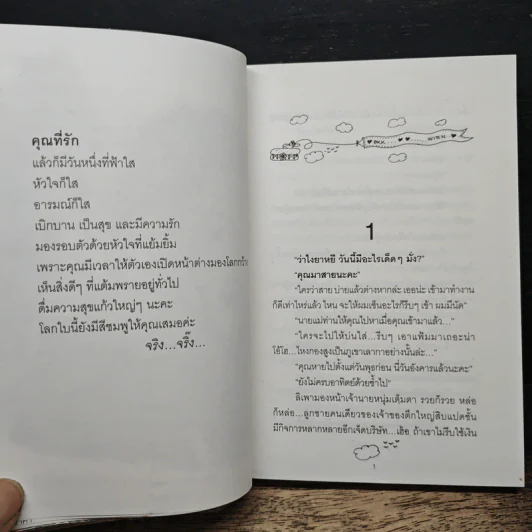 คุณที่รัก
แล้วก็มีวันหนึ่งที่ฟ้าใส
หัวใจก็ใส
อารมณ์ก็ใส
เบิกบาน เป็นสุข และมีความรัก
มองรอบตัวด้วยหัวใจที่แย้มยิ้ม
เพราะคุณมีเวลาให้ตัวเองเปิดหน้าต่างมองโลกกว้าง
เห็นสิ่งดีๆ ที่แต้มพรายอยู่ทั่วไป
ดื่มความสุขแก้วใหญ่ๆ นะคะ
โลกใบนี้ยังมีสีชมพูให้คุณเสมอค่ะ
จริง...จริ๊ง...
1
"ว่าไงยาหยี วันนี้มีอะไรเด็ดๆ มั่ง?"
"คุณมาสายนะคะ"
"ใครว่าสาย บ่ายแล้วต่างหากล่ะ เออน่ะ เข้ามาทำงาน
ก็ดีเท่าไหร่แล้ว ไหน จะให้ผมเซ็นอะไรก็รีบๆ เข้า ผมมีนัด"
"นายแม่ท่านให้คุณไปหาเมื่อคุณเข้ามาแล้ว..."
"ใครจะไปให้บ่นใส่...รีบๆ เอาแฟ้มมาเถอะน่า
โอ้โฮ...ไหงกองสูงเป็นภูเขาเลากาอย่างนั้นล่ะ..."
"คุณหายไปตั้งแต่วันพุธก่อน นี่วันอังคารแล้วนะคะ"
"ยังไม่ครบอาทิตย์ด้วยซ้ำไป"
ลิเพามองหน้าเจ้านายหนุ่มเต็มตา รวยก็รวย หล่อ
ก็หล่อ...ลูกชายคนเดียวของเจ้าของตึกใหญ่สิบแปดชั้น
มีกิจการหลากหลายอีกเจ็ดบริษัท...เฮ้อ ถ้าเขาไม่รีบใช้เงิน
1